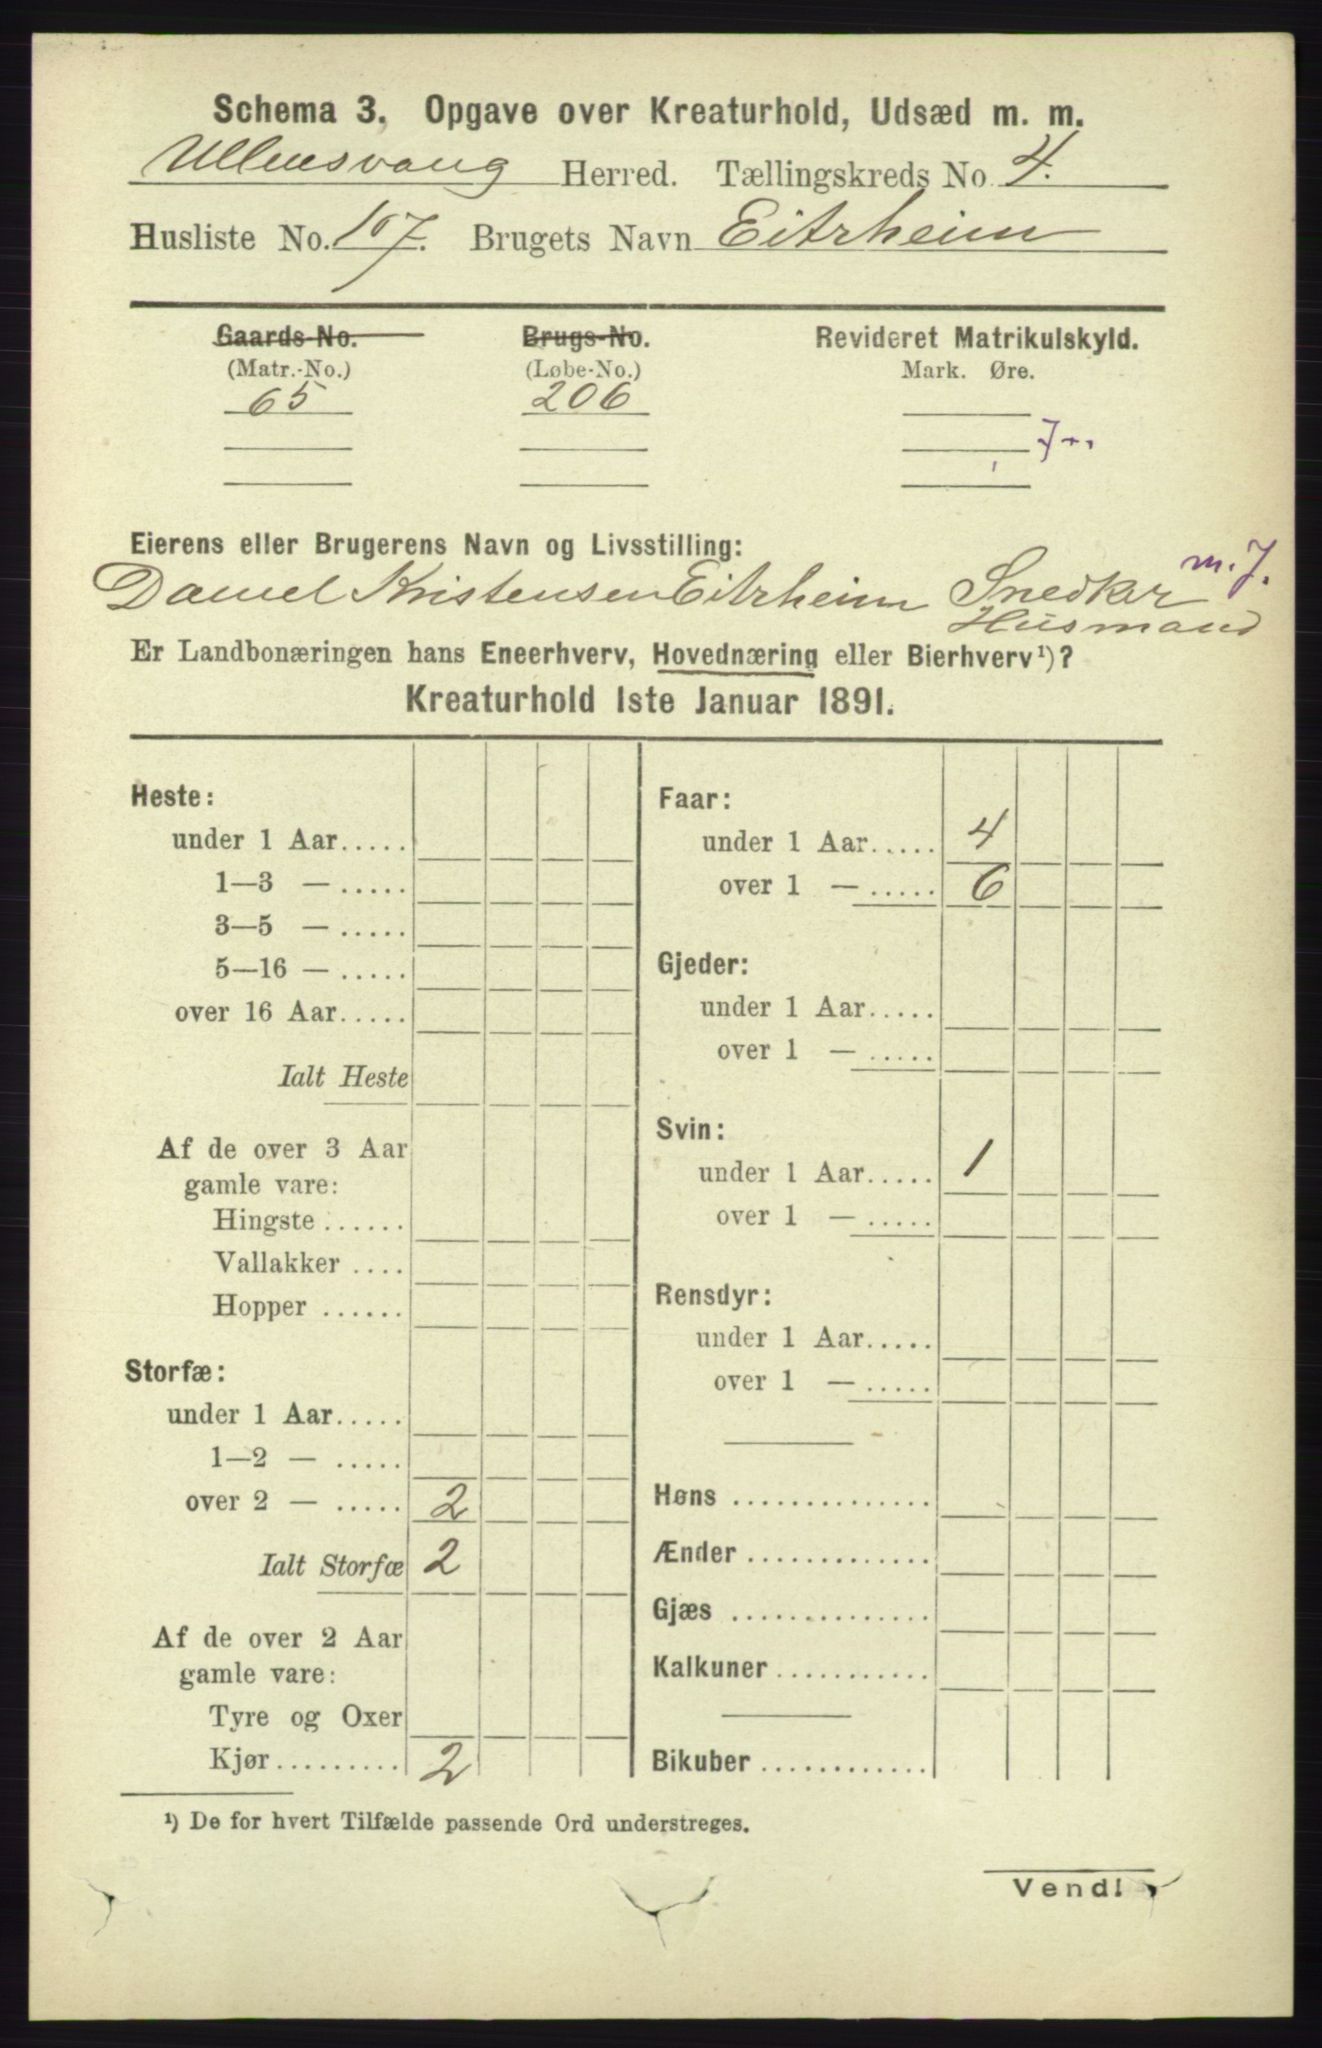 Schema 3. Opgave over Kreaturhold, Udsæd m. m.
Ullensvang Herred. Tællingskreds No. 4.
Husliste No. 107. Brugets Navn Eitrheim
Gaards-No. Brugs-No. Revideret Matrikulskyld.
(Matr.-No.) (Løbe-No.) Mark. Øre.
65 206
Eierens eller Brugerens Navn og Livsstilling:
m. J.
Daniel Kristensen Eitrheim Snedker
Husmand
Er Landbonæringen hans Eneerhverv, Hovednæring eller Bierhverv¹)?
Kreaturhold 1ste Januar 1891.
Heste:
under 1 Aar.....
1—3 — .....
3—5 — .....
5—16 — .....
over 16 Aar.....
Ialt Heste
Af de over 3 Aar
gamle vare:
Hingste ......
Vallakker ....
Hopper ......
Storfæ:
under 1 Aar.....
1—2 — .....
over 2 — ..... 2
Ialt Storfæ 2
Af de over 2 Aar
gamle vare:
Tyre og Oxer
Kjør......... 2
Faar:
under 1 Aar..... 4
over 1 — ..... 6
Gjeder:
under 1 Aar.....
over 1 — .....
Svin:
under 1 Aar..... 1
over 1 — .....
Rensdyr:
under 1 Aar.....
over 1 — .....
Høns ..............
Ænder .............
Gjæs ..............
Kalkuner...........
Bikuber ............
¹) De for hvert Tilfælde passende Ord understreges.
Vend!